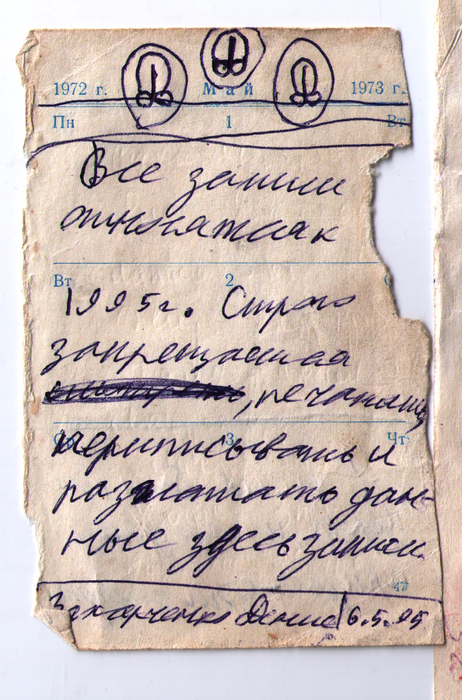 1972 г. Май 1973 г.
Пн 1 Вт
Все записи
относятся к
Вт 2
1995г. Строго
запрещается
, печатать,
3 Чт
переписывать и
разглашать дан-
ные здесь записи.
47
Захарченко Денис 6.5.95